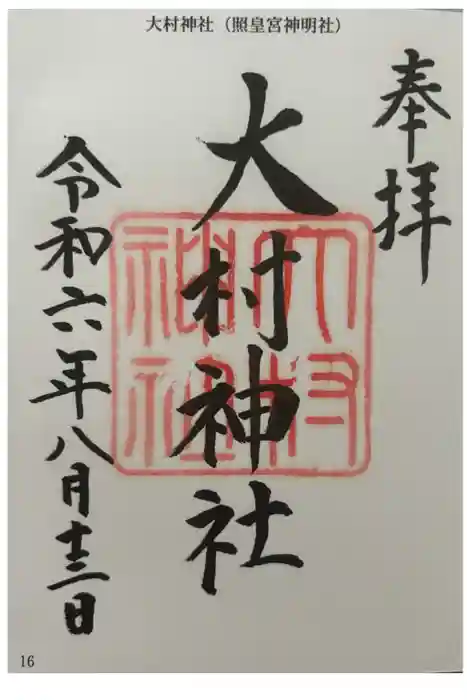 大村神社（照皇宮神明社）
奉拝
大村神社
大村神社
令和六年八月十三日
16